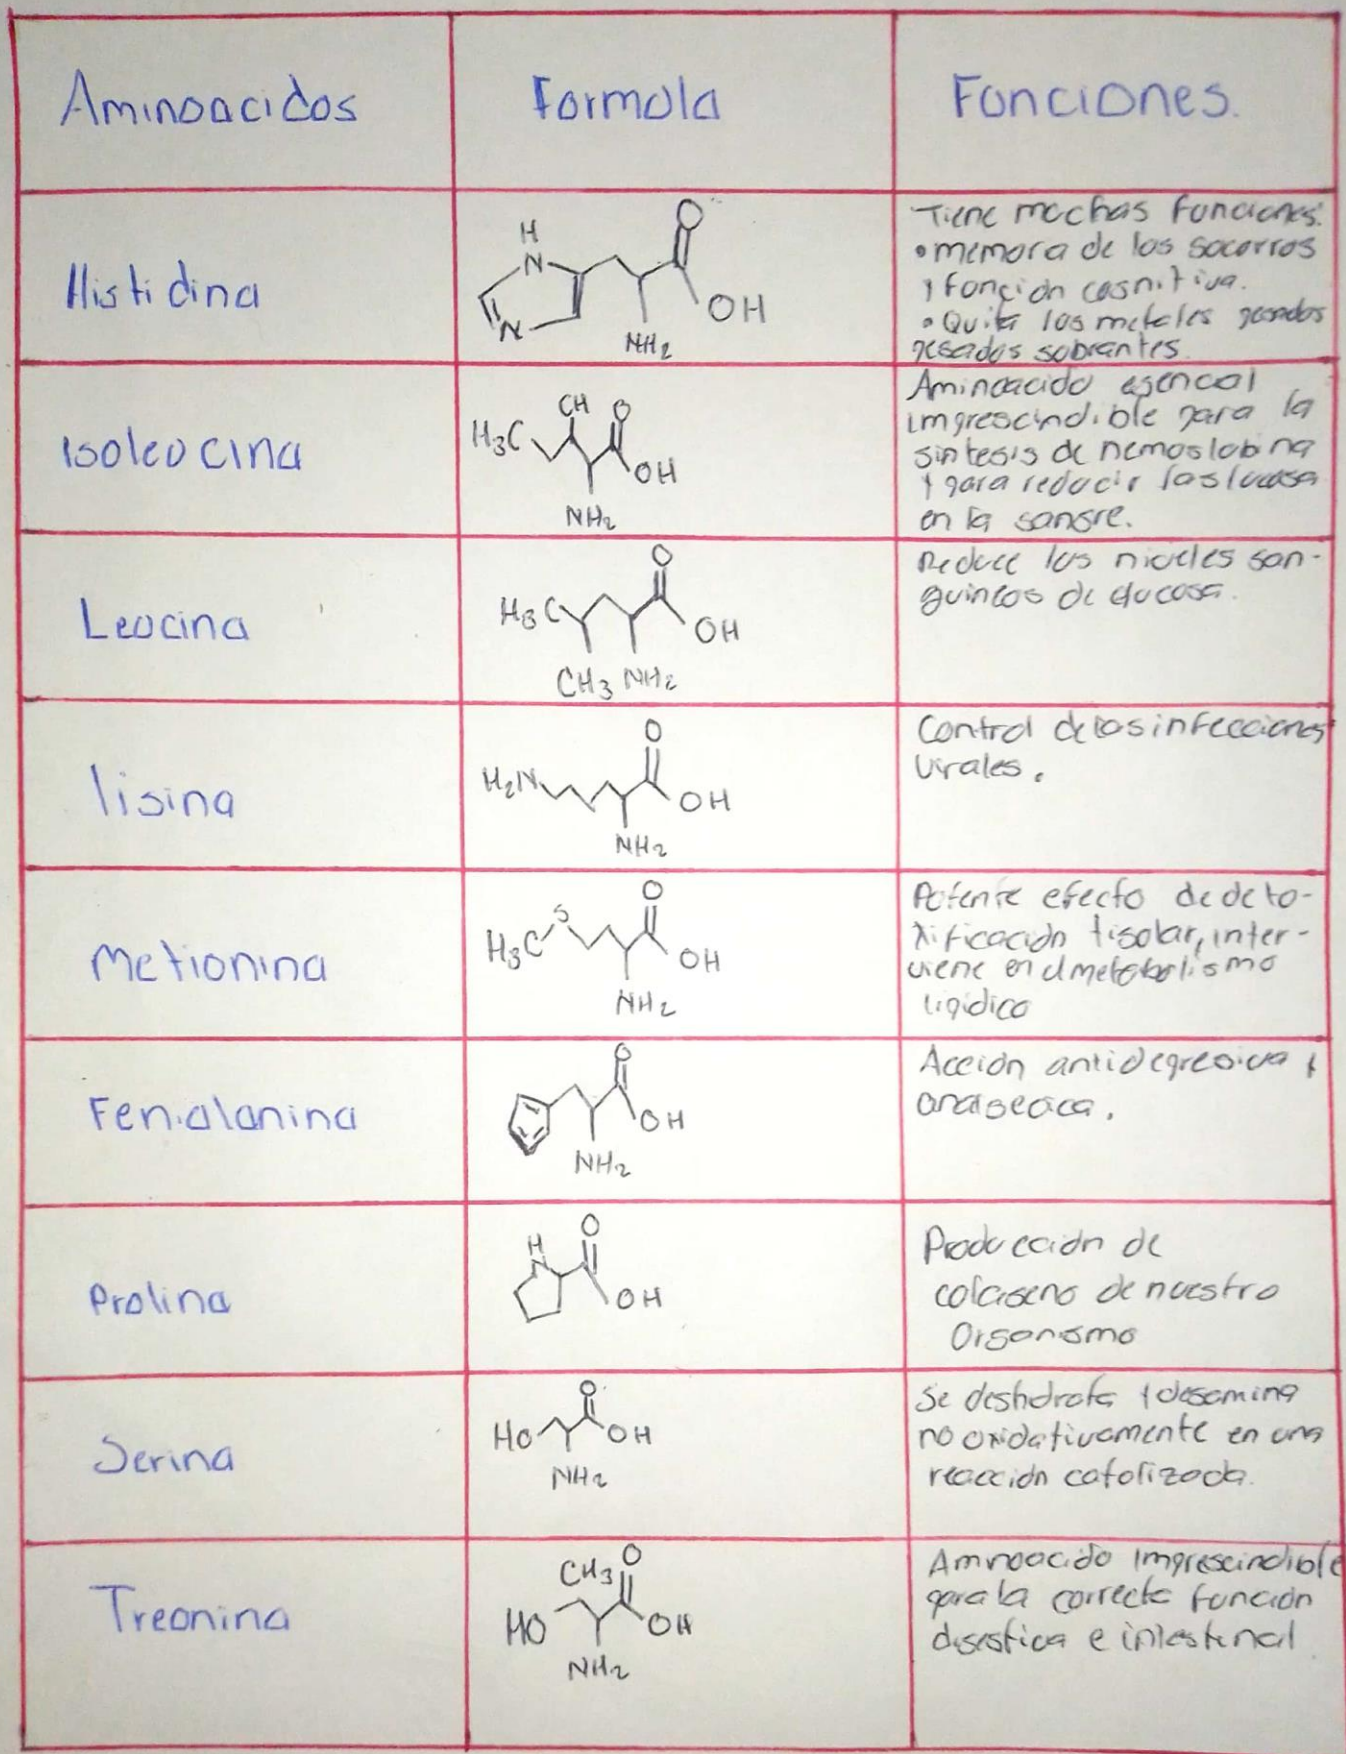 Aminoacidos
Formula
Funciones.
Histidina
H
N
N
O
OH
NH2
Tiene muchas funciones:
• memora de los socorros
y función cognitiva.
• Quita los metales pesados
pesados sobrantes.
Isoleucina
CH
O
H3C
OH
NH2
Aminoacido esencial
imprescindible para la
sintesis de hemoglobina
y para reducir la glucosa
en la sangre.
Leucina
O
H3C
OH
CH3 NH2
Reduce los niveles san-
guineos de glucosa.
lisina
O
H2N
OH
NH2
Control de las infecciones
virales.
Metionina
S
O
H3C
OH
NH2
Potente efecto de deto-
xificación tisular, inter-
viene en el metabolismo
lipidico
Fenialanina
O
OH
NH2
Acción antidepresiva y
analgecica.
Prolina
H
N
O
OH
Producción de
colageno de nuestro
Organismo
Serina
O
HO
OH
NH2
Se deshdrata y desamina
no oxidativamente en una
reacción catolizada.
Treonina
CH3
O
HO
OH
NH2
Amnoacido imprescindible
para la correcta función
digestiva e intestinal